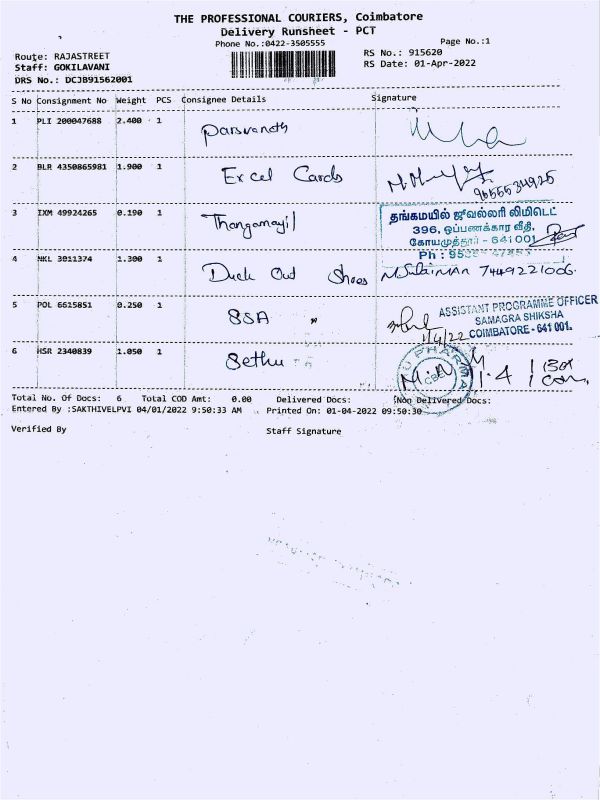 THE PROFESSIONAL COURIERS, Coimbatore
Delivery Runsheet - PCT
Phone No.:0422-3505555
Page No.:1
Route: RAJASTREET
RS No.: 915620
Staff: GOKILAVANI
RS Date: 01-Apr-2022
DRS No.: DCJB91562001
S No Consignment No Weight PCS Consignee Details Signature
1 PLI 200047688 2.400 1 Parsvanath
2 BLR 4350865981 1.900 1 Excel Cards
9655534925
3 IXM 49924265 0.190 1 Thangamayil
தங்கமயில் ஜுவல்லரி லிமிடெட்
396, ஒப்பணக்கார வீதி,
கோயமுத்தூர் - 641 001
Ph :
4 NKL 3011374 1.300 1 Duck Out Shoes 7449221006
5 POL 6615851 0.250 1 SSA "
ASSISTANT PROGRAMME OFFICER
SAMAGRA SHIKSHA
COIMBATORE - 641 001.
1/4/22
6 HSR 2340839 1.050 1 Sethu
PHARMA
CBE
1.4 1 Box
Total No. Of Docs: 6 Total COD Amt: 0.00 Delivered Docs: Non Delivered Docs:
Entered By :SAKTHIVELPVI 04/01/2022 9:50:33 AM Printed On: 01-04-2022 09:50:30
Verified By Staff Signature